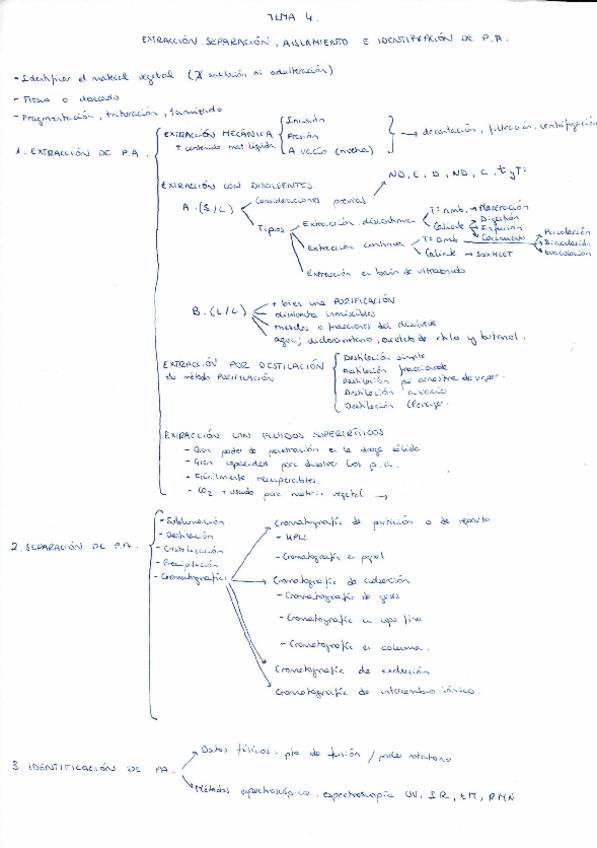 TEMA 4.
EXTRACCIÓN, SEPARACIÓN, AISLAMIENTO E IDENTIFICACIÓN DE P.A.
- Identificar el material vegetal (X sustitución ni adulteración)
- Fresca o desecado
- Fragmentación, trituración, tamizado
1. EXTRACCIÓN DE P.A.
EXTRACCIÓN MECÁNICA
+ contenido mat líquida
Incisión
Presión
A vacío
→ decantación, filtración, centrifugación
EXTRACCIÓN CON DISOLVENTES
A. (S/L)
Consideraciones previas
ND, C, D, ND, C, t y Tª
Tipos
Extracción discontinua
Tª amb. → Maceración
Caliente
Digestión
Infusión
Cocimiento
Extracción continua
Tª amb
Percolación
Caliente → SOXHLET
Extracción en baño de ultrasonido
B. (L/L)
+ bien una PURIFICACIÓN
disolventes inmiscibles
mezclas o fracciones del disolvente
agua; diclorometano, acetato de etilo y butanol.
EXTRACCIÓN POR DESTILACIÓN
método PURIFICACIÓN
Destilación simple
Destilación fraccionada
Destilación por arrastre de vapor.
Destilación a vacío
Destilación
EXTRACCIÓN CON FLUIDOS SUPERCRÍTICOS
- Gran poder de penetración en la droga sólida
- Gran capacidad para disolver los p.a.
- Fácilmente recuperables.
- CO2 + usado para materia vegetal →
2. SEPARACIÓN DE P.A.
- Sublimación
- Destilación
- Cristalización
- Precipitación
- Cromatografías
Cromatografía de partición o de reparto
- HPLC
- Cromatografía en papel
Cromatografía de adsorción
- Cromatografía de gases
- Cromatografía en capa fina
- Cromatografía en columna.
Cromatografía de exclusión
Cromatografía de intercambio iónico.
3. IDENTIFICACIÓN DE PA.
Datos físicos: pto de fusión / poder rotatorio
Métodos espectroscópicos: espectroscopia UV, IR, EM, RMN